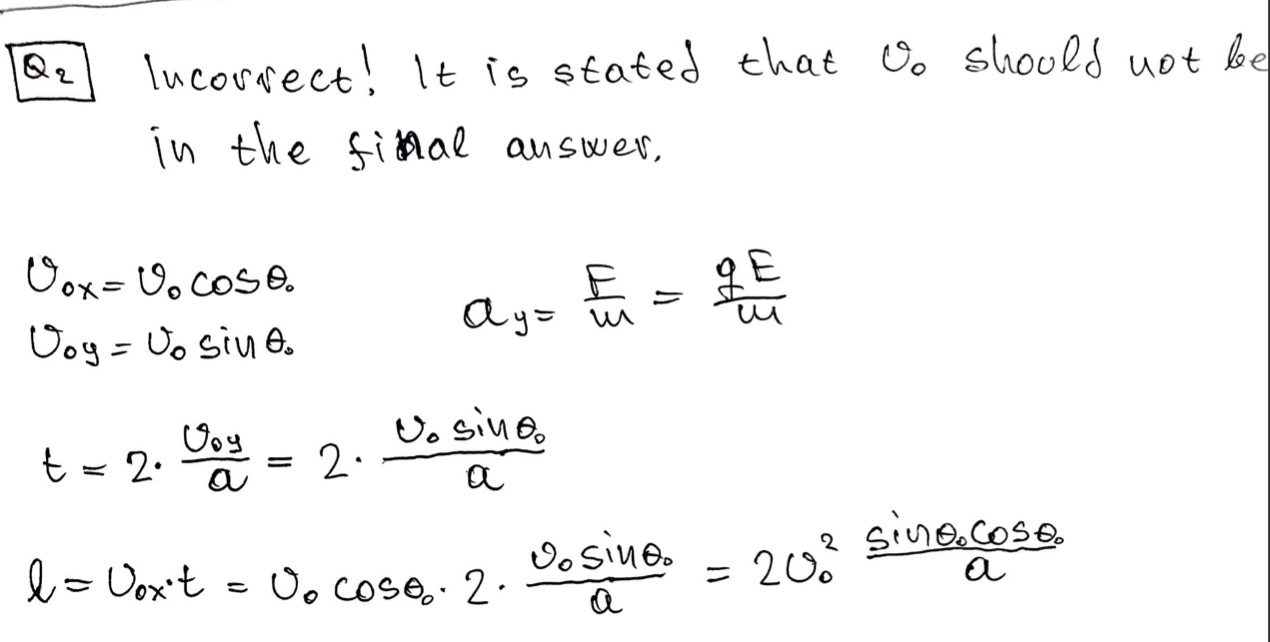 Q₂ Incorrect! It is stated that υ₀ should not be
in the final answer.
υ₀ₓ = υ₀ cosθ₀
a_y = F/m = qE/m
υ₀y = υ₀ sinθ₀
t = 2· υ₀y/a = 2· υ₀ sinθ₀/a
l = υ₀ₓ·t = υ₀ cosθ₀· 2· υ₀ sinθ₀/a = 2υ₀² sinθ₀cosθ₀/a